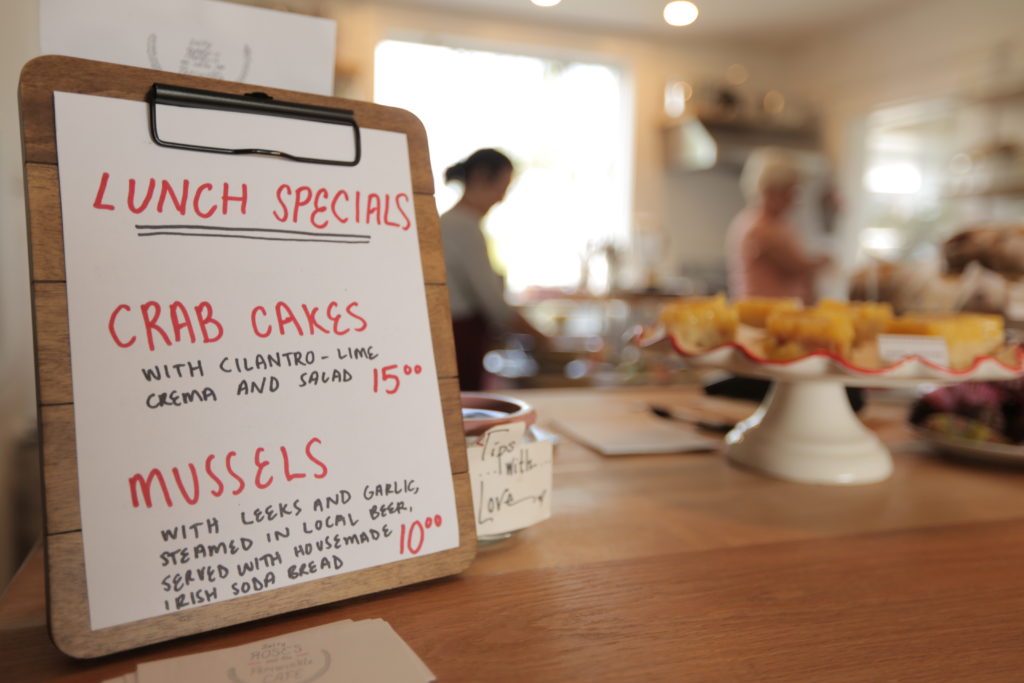 LUNCH SPECIALS
CRAB CAKES
WITH CILANTRO-LIME
CREMA AND SALAD 15⁰⁰
MUSSELS
WITH LEEKS AND GARLIC,
STEAMED IN LOCAL BEER,
SERVED WITH HOUSEMADE 10⁰⁰
IRISH SODA BREAD
Tips
with
Love
ROSE'S
CAFE